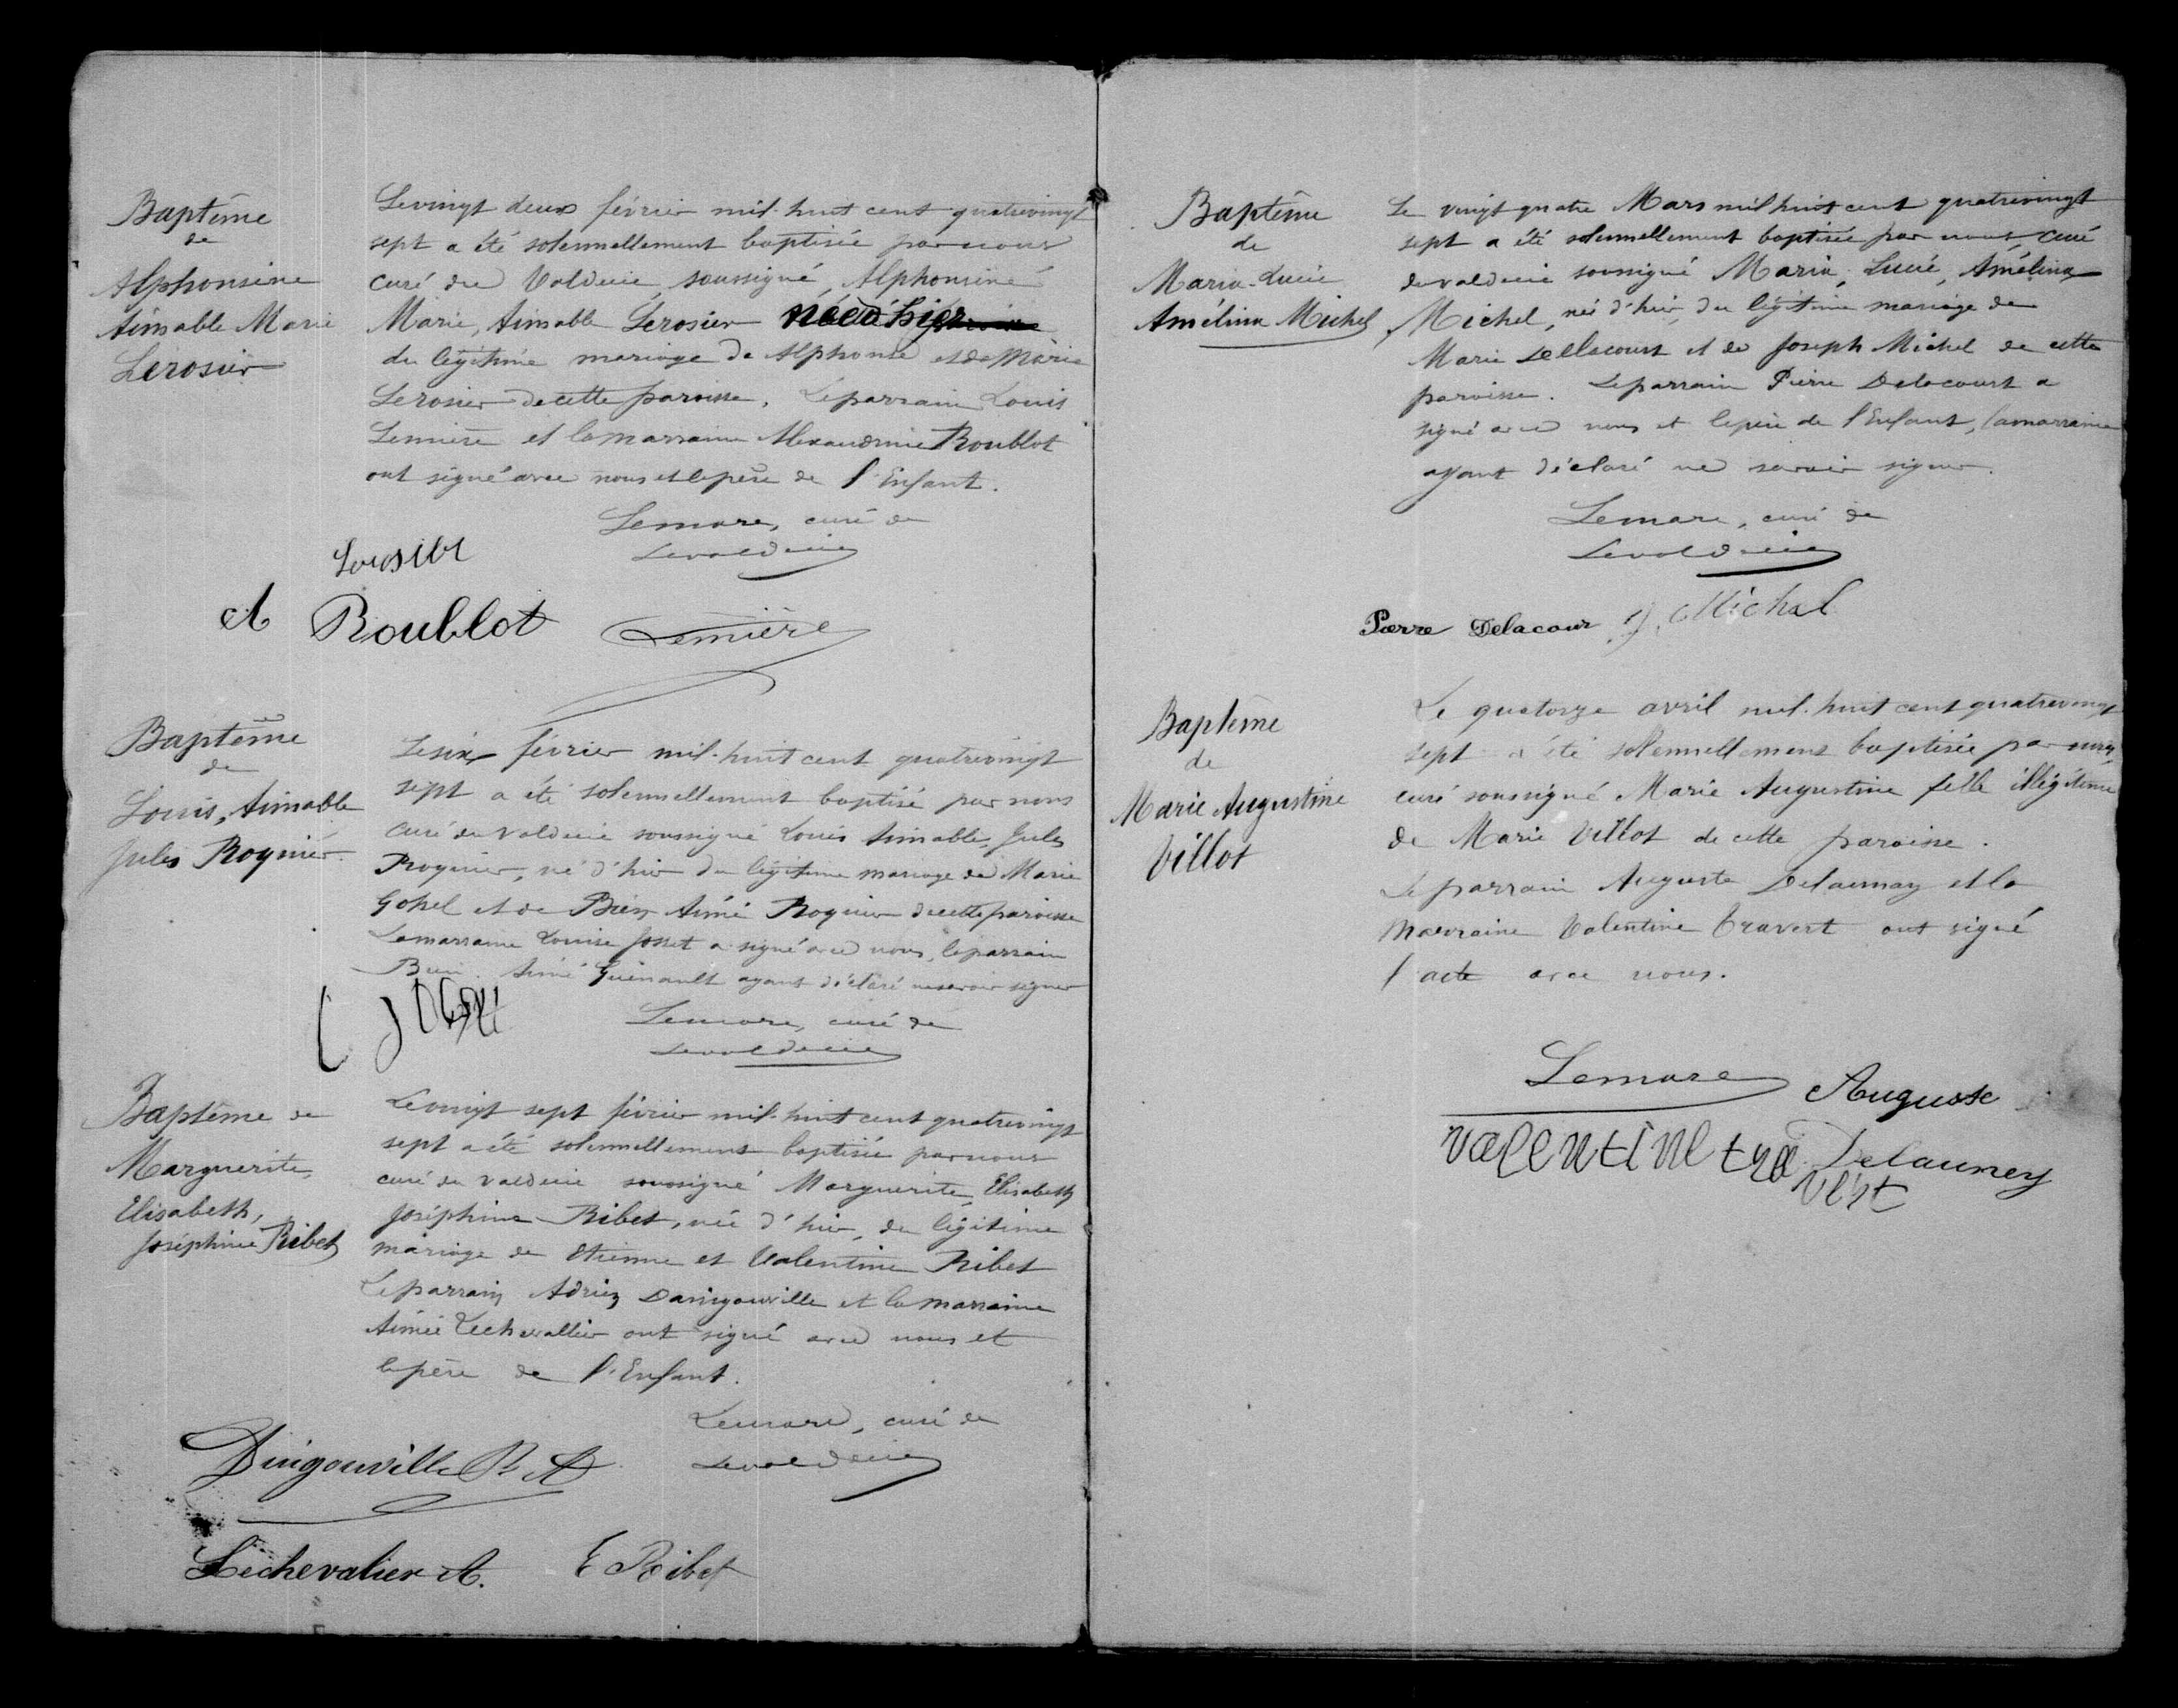 Baptême
de
Alphonsine
Aimable Marie
Lerosier
Le vingt deux février mil-huit cent quatrevingt
sept a été solennellement baptisée par nous
curé du Valdecie, soussigné, Alphonsine
Marie, Aimable Lerosier née d'hier
du légitime mariage de Alphonse et de Marie
Lerosier de cette paroisse. Le parrain Louis
Lemière et la marraine Alexandrine Roublot
ont signé avec nous et le père de l'Enfant.
Lemare, curé de
Levaldecie
Lerosier
A Roublot Lemière
Baptême
de
Louis, Aimable
Jules Roynier
Le six février mil-huit cent quatrevingt
sept a été solennellement baptisé par nous
curé du Valdecie soussigné Louis Aimable, Jules
Roynier, né d'hier du légitime mariage de Marie
Gohel et de Bien Aimé Roynier de cette paroisse
La marraine Louise Josset a signé avec nous, le parrain
Bien. Aimé Guénault ayant déclaré ne savoir signer
Lemare, curé de
Levaldecie
Baptême de
Marguerite,
Elisabeth,
Joséphine Ribet
Le vingt sept février mil-huit cent quatrevingt
sept a été solennellement baptisée par nous
curé du Valdecie soussigné Marguerite, Elisabeth
Joséphine Ribet, née d'hier, du légitime
mariage de Etienne et Valentine Ribet
Le parrain Adrien Dangouville et la marraine
Aimée Lechevallier ont signé avec nous et
le père de l'Enfant.
Lemare, curé de
Levaldecie
Dingouville R A
Lechevalier A. E Ribet
Baptême
de
Maria-Lucie
Amélina Michel
Le vingt quatre Mars mil huit cent quatrevingt
sept a été solennellement baptisée par nous, curé
du valdecie soussigné Maria, Lucie, Amélina
Michel, née d'hier, du légitime mariage de
Marie Dellacourt et de Joseph Michel de cette
paroisse. Le parrain Pierre Delacourt a
signé avec nous et le père de l'Enfant, la marraine
ayant déclaré ne savoir signer.
Lemare, curé de
Levaldecie
Pierre Delacour J. Michel
Baptême
de
Marie Augustine
Villot
Le quatorze avril mil-huit cent quatrevingt
sept a été solennellement baptisée par nous,
curé soussigné Marie Augustine fille illégitime
de Marie Villot de cette paroisse.
Le parrain Auguste Delaunay et la
marraine Valentine Travert ont signé
l'acte avec nous.
Lemare Auguste
valentine tra Delauney
vert